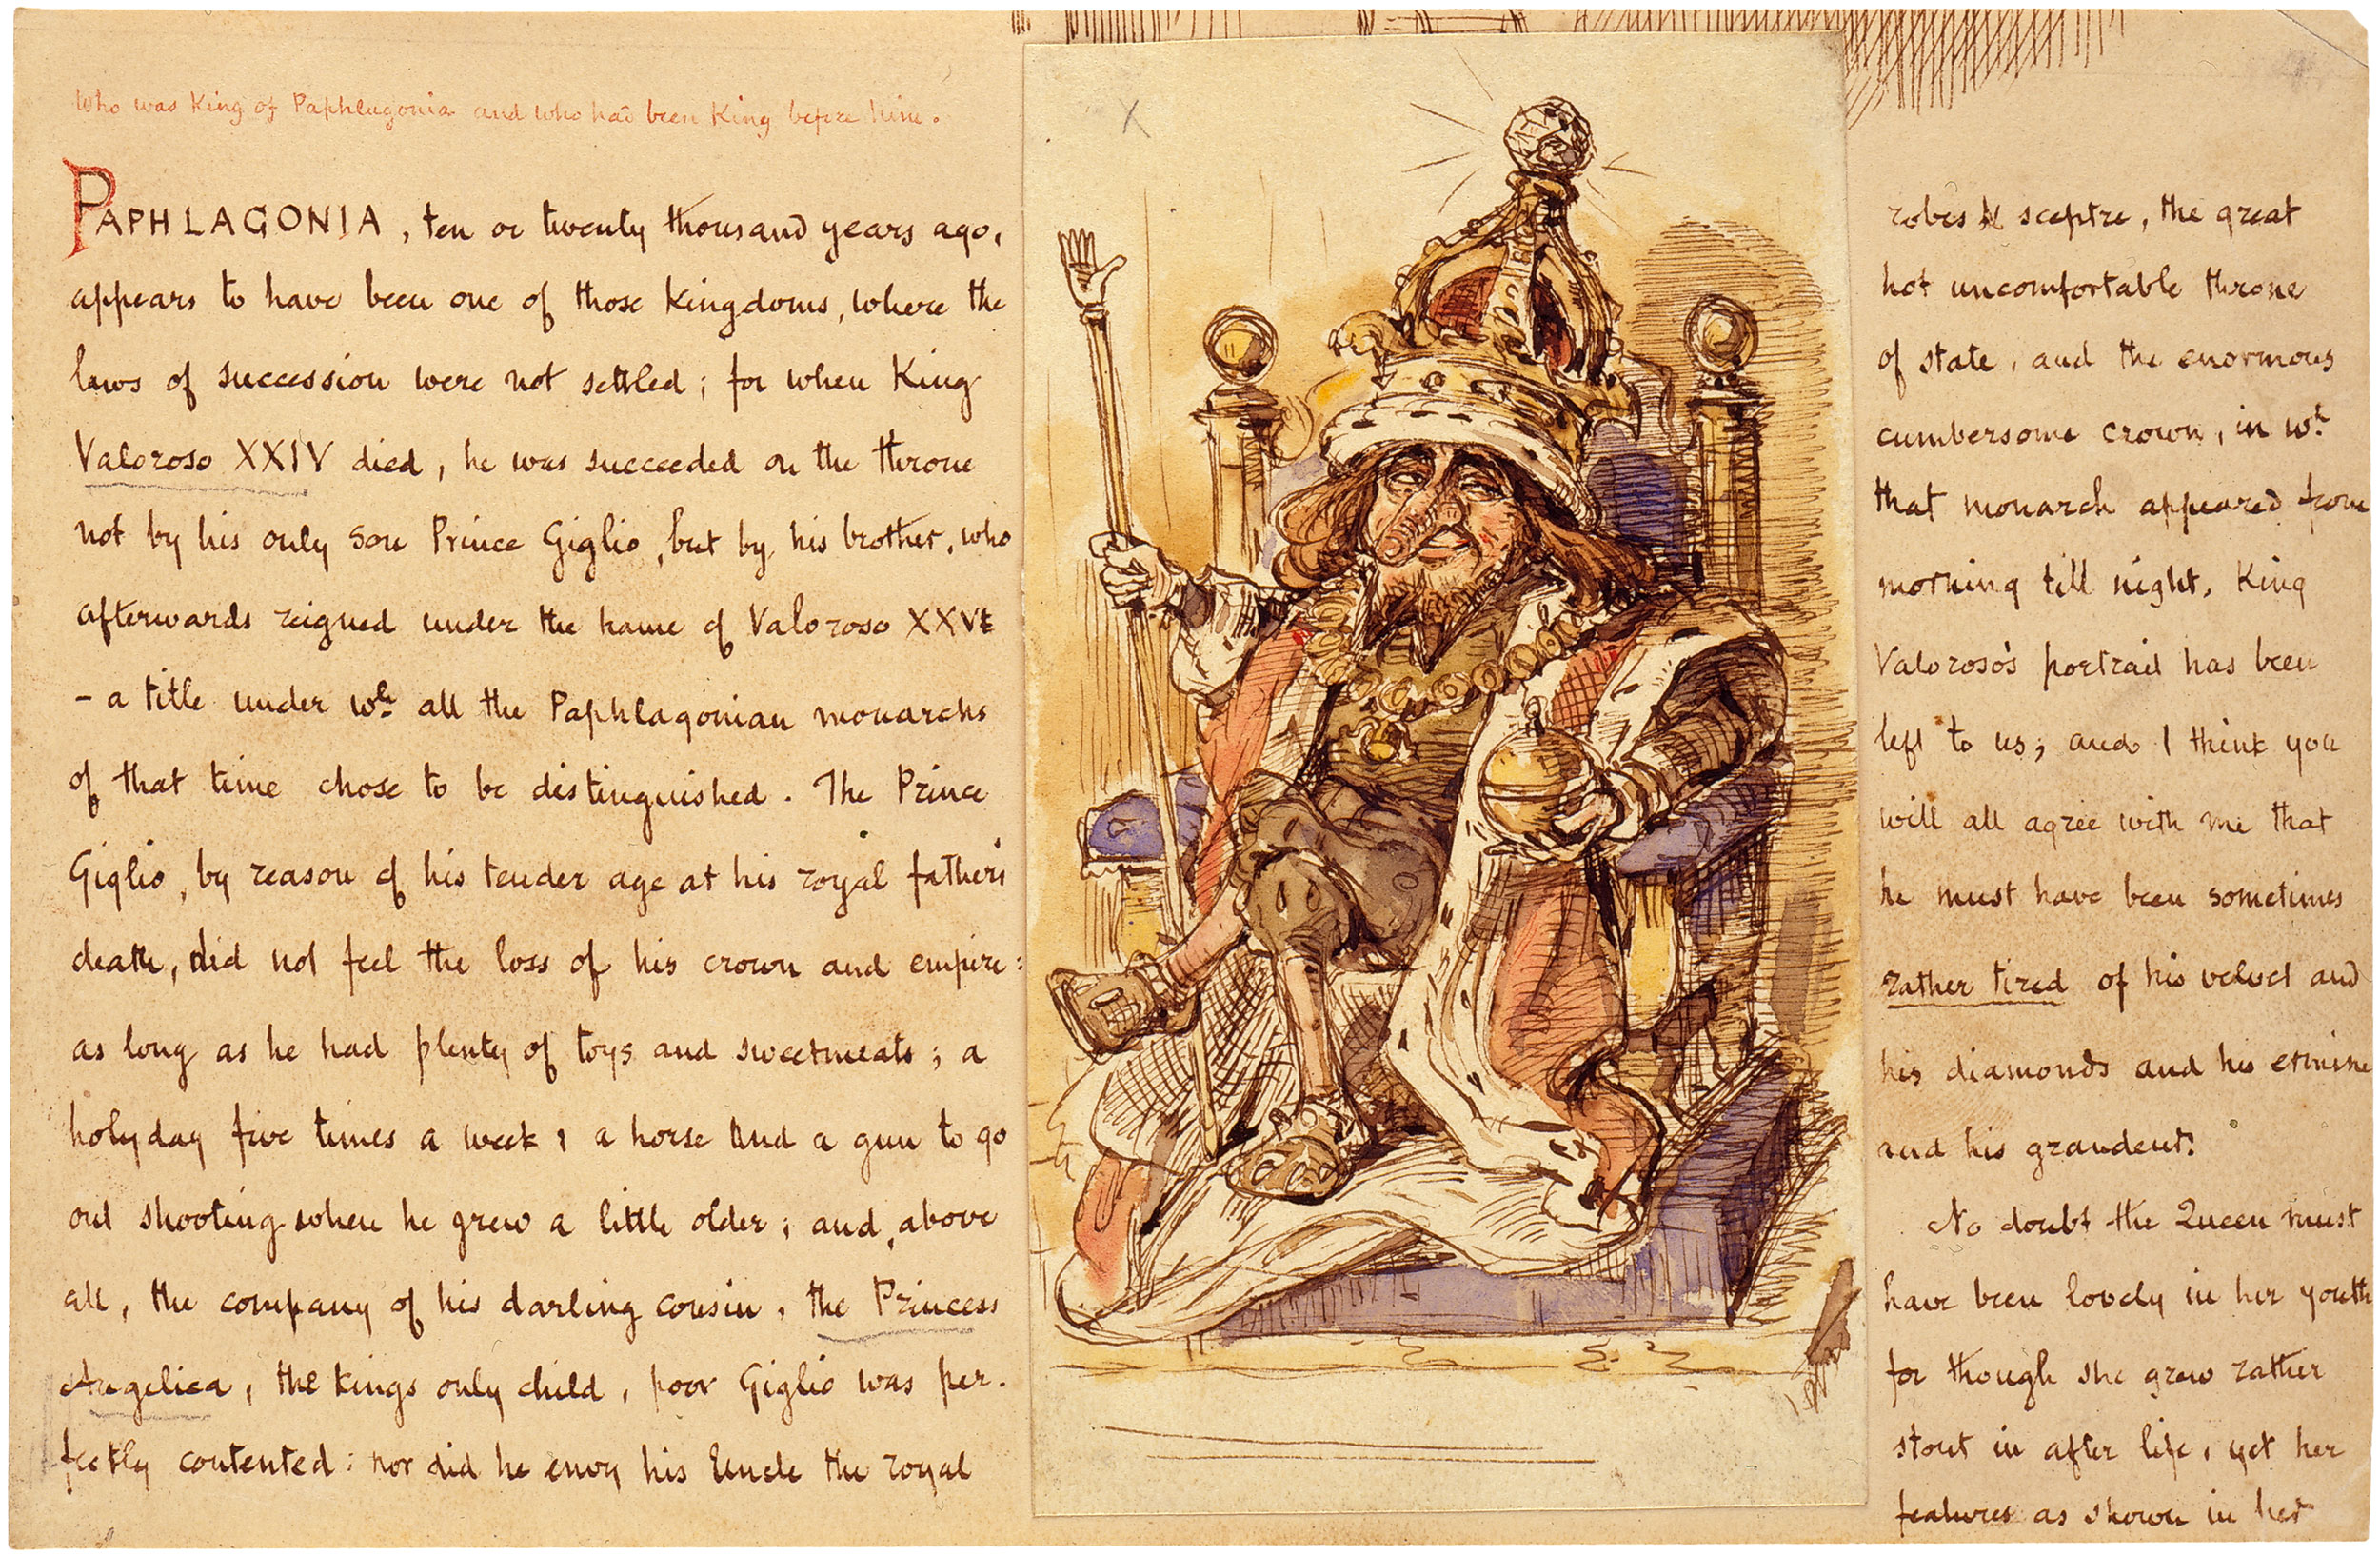 Who was King of Paphlagonia and who had been King before him.
PAPHLAGONIA, ten or twenty thousand years ago,
appears to have been one of those kingdoms, where the
laws of succession were not settled; for when King
Valoroso XXIV died, he was succeeded on the throne
not by his only son Prince Giglio, but by his brother, who
afterwards reigned under the name of Valoroso XXVth
- a title under wh. all the Paphlagonian monarchs
of that time chose to be distinguished. The Prince
Giglio, by reason of his tender age at his royal father's
death, did not feel the loss of his crown and empire:
as long as he had plenty of toys and sweetmeats; a
holyday five times a week, a horse and a gun to go
out shooting when he grew a little older; and, above
all, the company of his darling cousin, the Princess
Angelica, the kings only child, poor Giglio was per-
fectly contented: nor did he envy his Uncle the royal
robes & sceptre, the great
hot uncomfortable throne
of state, and the enormous
cumbersome crown, in wh.
that monarch appeared from
morning till night. King
Valoroso's portrait has been
left to us; and I think you
will all agree with me that
he must have been sometimes
rather tired of his velvet and
his diamonds and his ermine
and his grandeur.
No doubt the Queen must
have been lovely in her youth
for though she grew rather
stout in after life, yet her
features as shown in her